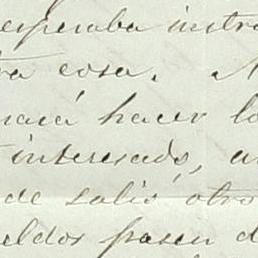 esperaba instr
ra cosa.
hacer lo
interesado, a
de salir otro
eldos pasen d